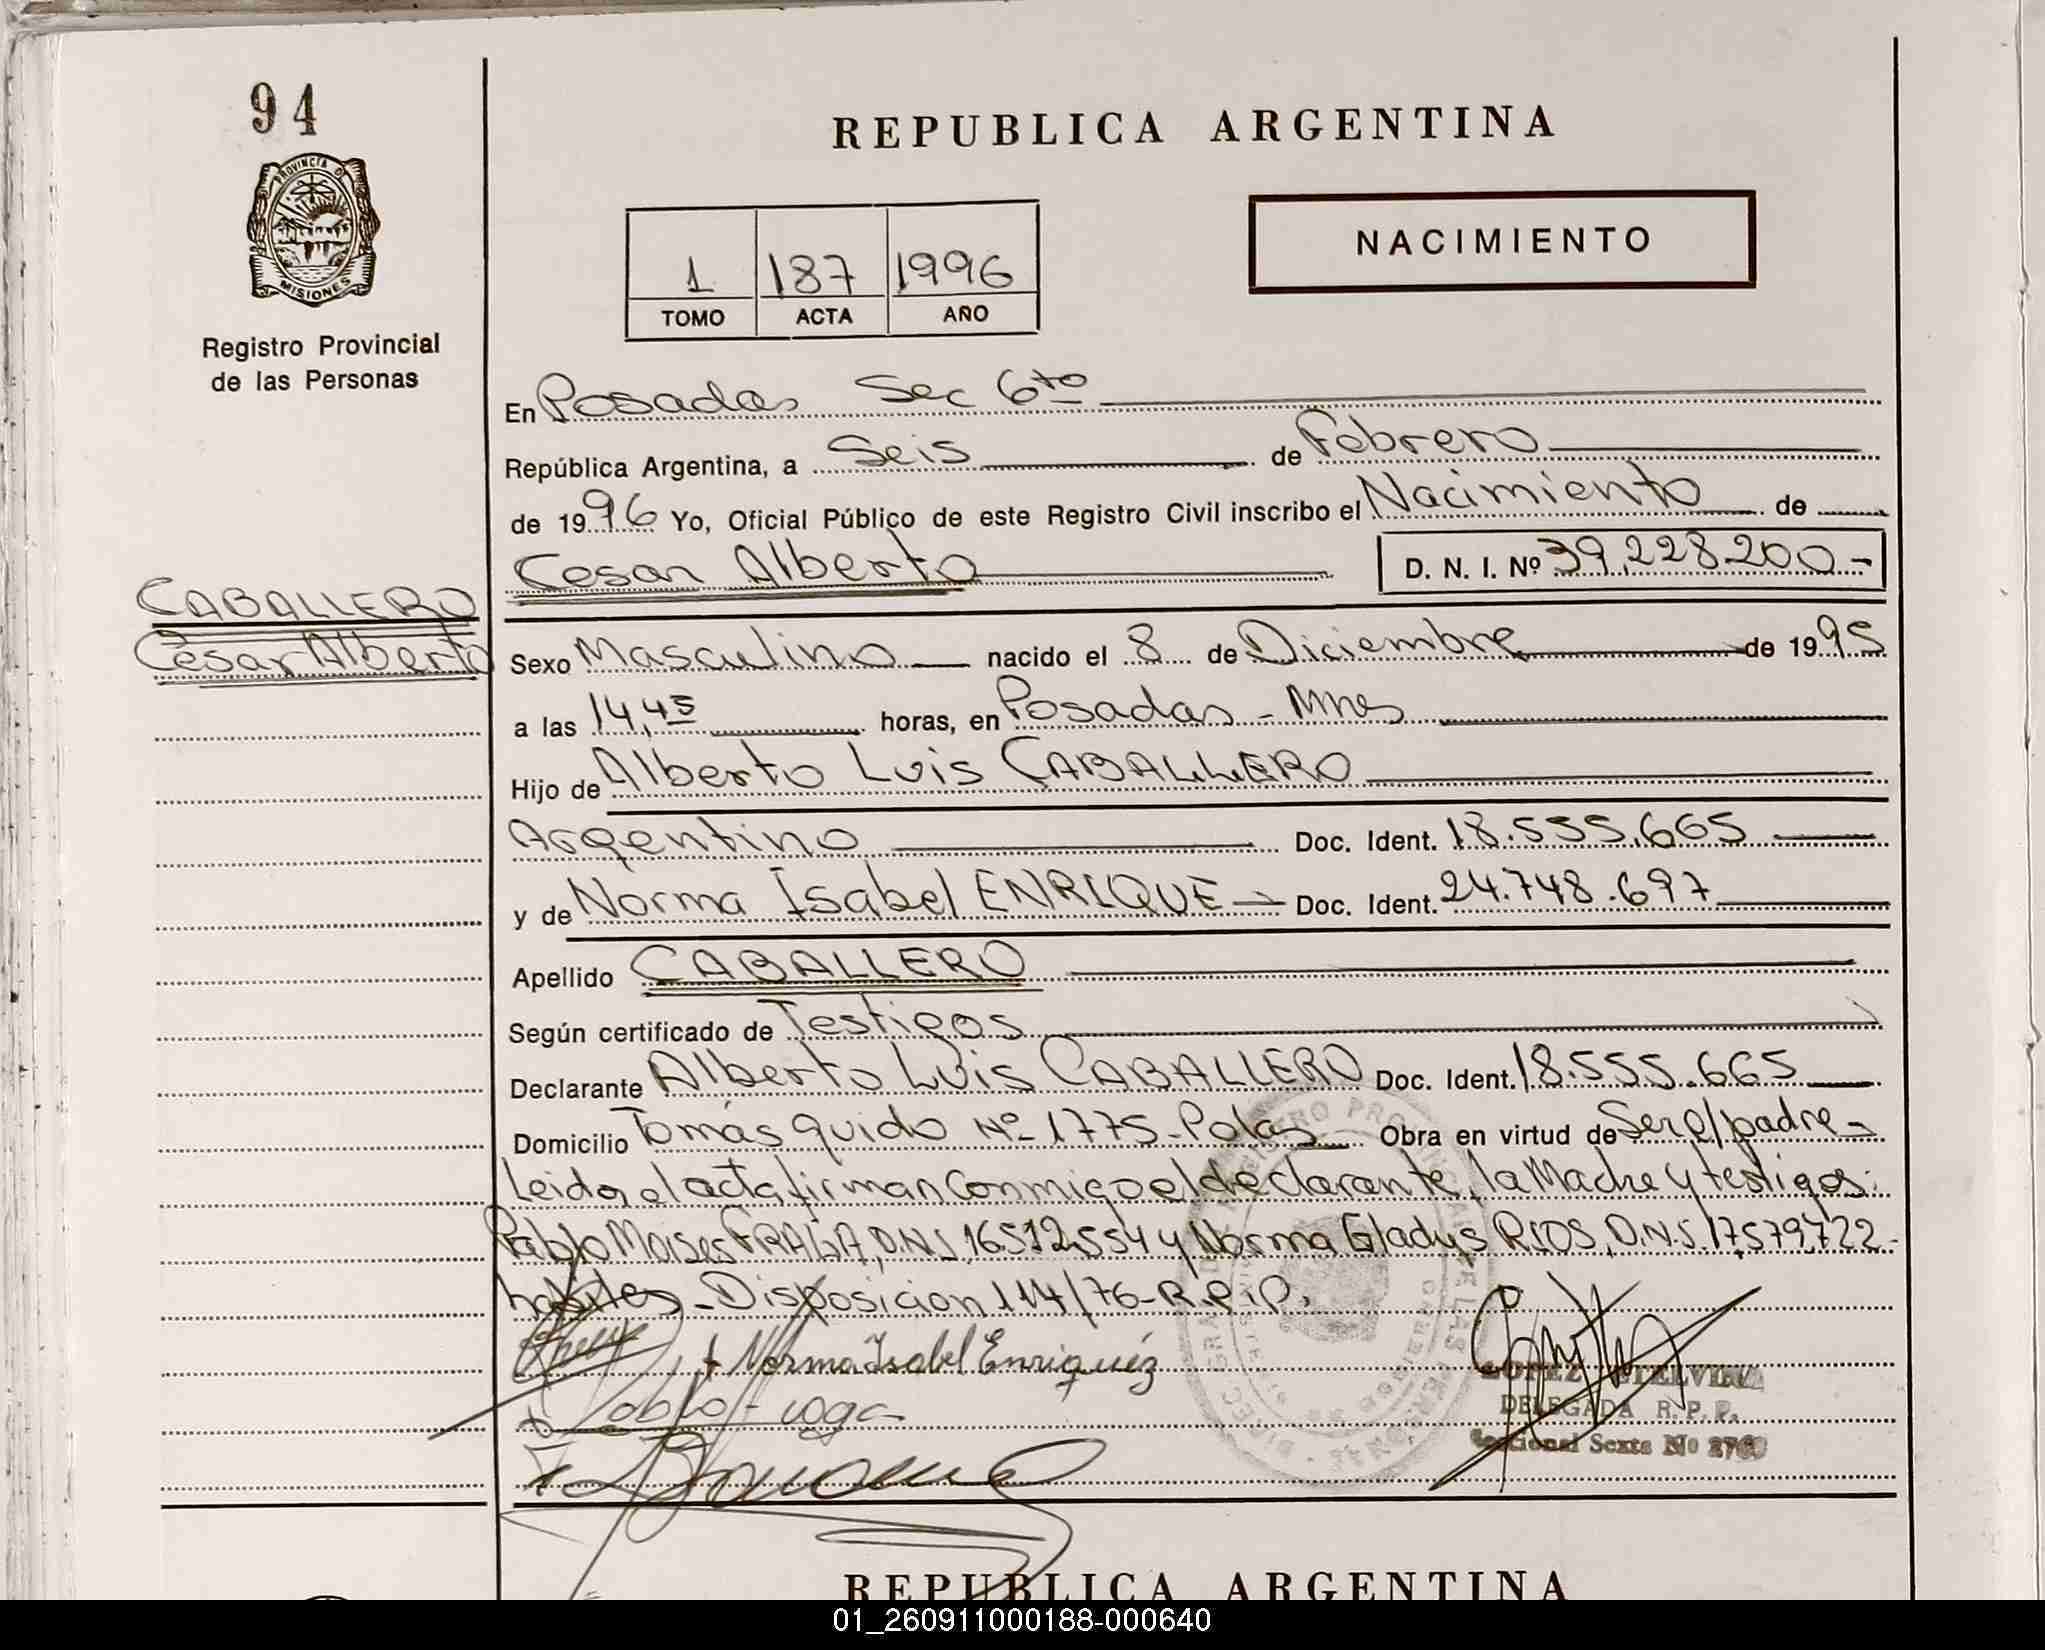 94
REPUBLICA ARGENTINA
PROVINCIA D
MISIONES
Registro Provincial
de las Personas
1 187 1996
TOMO ACTA AÑO
NACIMIENTO
En Posadas Sec 6to
República Argentina, a Seis de Febrero
de 1996 Yo, Oficial Público de este Registro Civil inscribo el Nacimiento de
Cesar Alberto D. N. I. Nº 39.228.200-
CABALLERO
Cesar Alberto
Sexo Masculino nacido el 8 de Diciembre de 1995
a las 14,45 horas, en Posadas - Mnes
Hijo de Alberto Luis CABALLERO
Argentino Doc. Ident. 18.555.665
y de Norma Isabel ENRIQUE Doc. Ident. 24.748.697
Apellido CABALLERO
Según certificado de Testigos
Declarante Alberto Luis CABALLERO Doc. Ident. 18.555.665
Domicilio Tomás guido Nº 1775-Pdas Obra en virtud de Ser e/padre-
Leida el acta firman Conmigo el declarante, la Madre y testigos:
Pablo Moises D.N.I. 16512554 y Norma Gladys RIOS, D.N.I. 17.579.722-
habiles - Disposicion 114/76-R.P.P.
+ Norma Isabel Enriquéz
LOPEZ
DELEGADA R. P. P.
Seccional Sexta Nº
REPUBLICA ARGENTINA
01_260911000188-000640